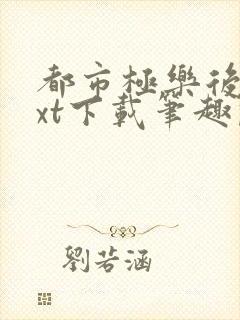 都市極樂後
xt下載筆趣
劉若涵